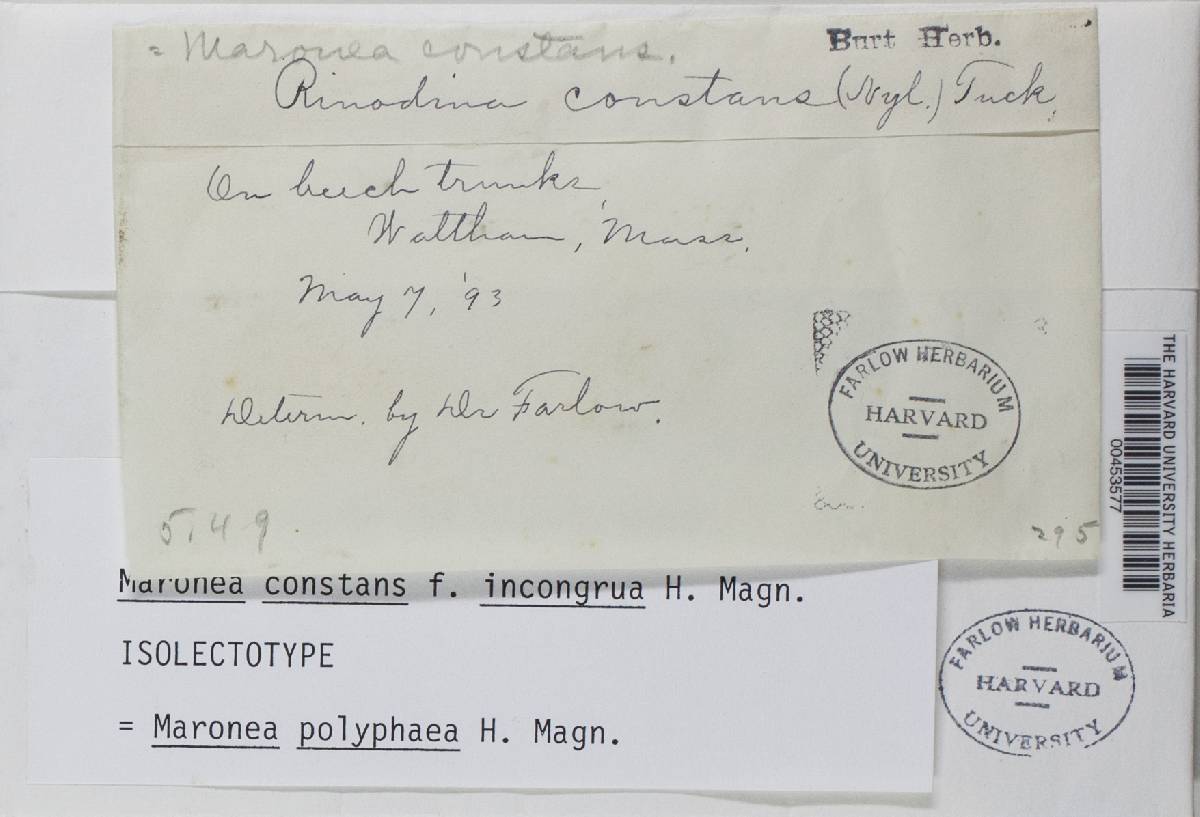 = Maronea constans.
Burt Herb.
Rinodina constans (Nyl.) Tuck.
On beech trunks,
Waltham, Mass.
May 7, '93
Determ. by Dr Farlow.
FARLOW HERBARIUM
HARVARD
UNIVERSITY
5149
295
Maronea constans f. incongrua H. Magn.
ISOLECTOTYPE
= Maronea polyphaea H. Magn.
THE HARVARD UNIVERSITY HERBARIA
00453577
FARLOW HERBARIUM
HARVARD
UNIVERSITY